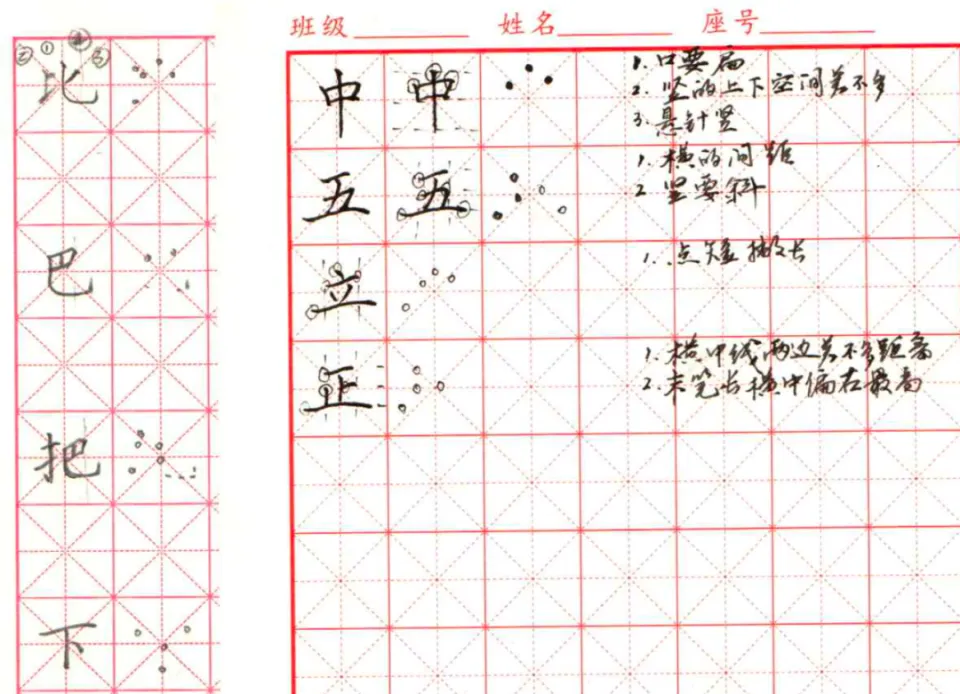 班级 姓名 座号
② ① ③
比
巴
把
下
中 中
1. 口要扁
2. 竖的上下空间差不多
3. 悬针竖
五 五
1. 横的间距
2 竖要斜
立
1. 点短撇长
正
1. 横中线两边差不多距离
2. 末笔长横中偏右最高